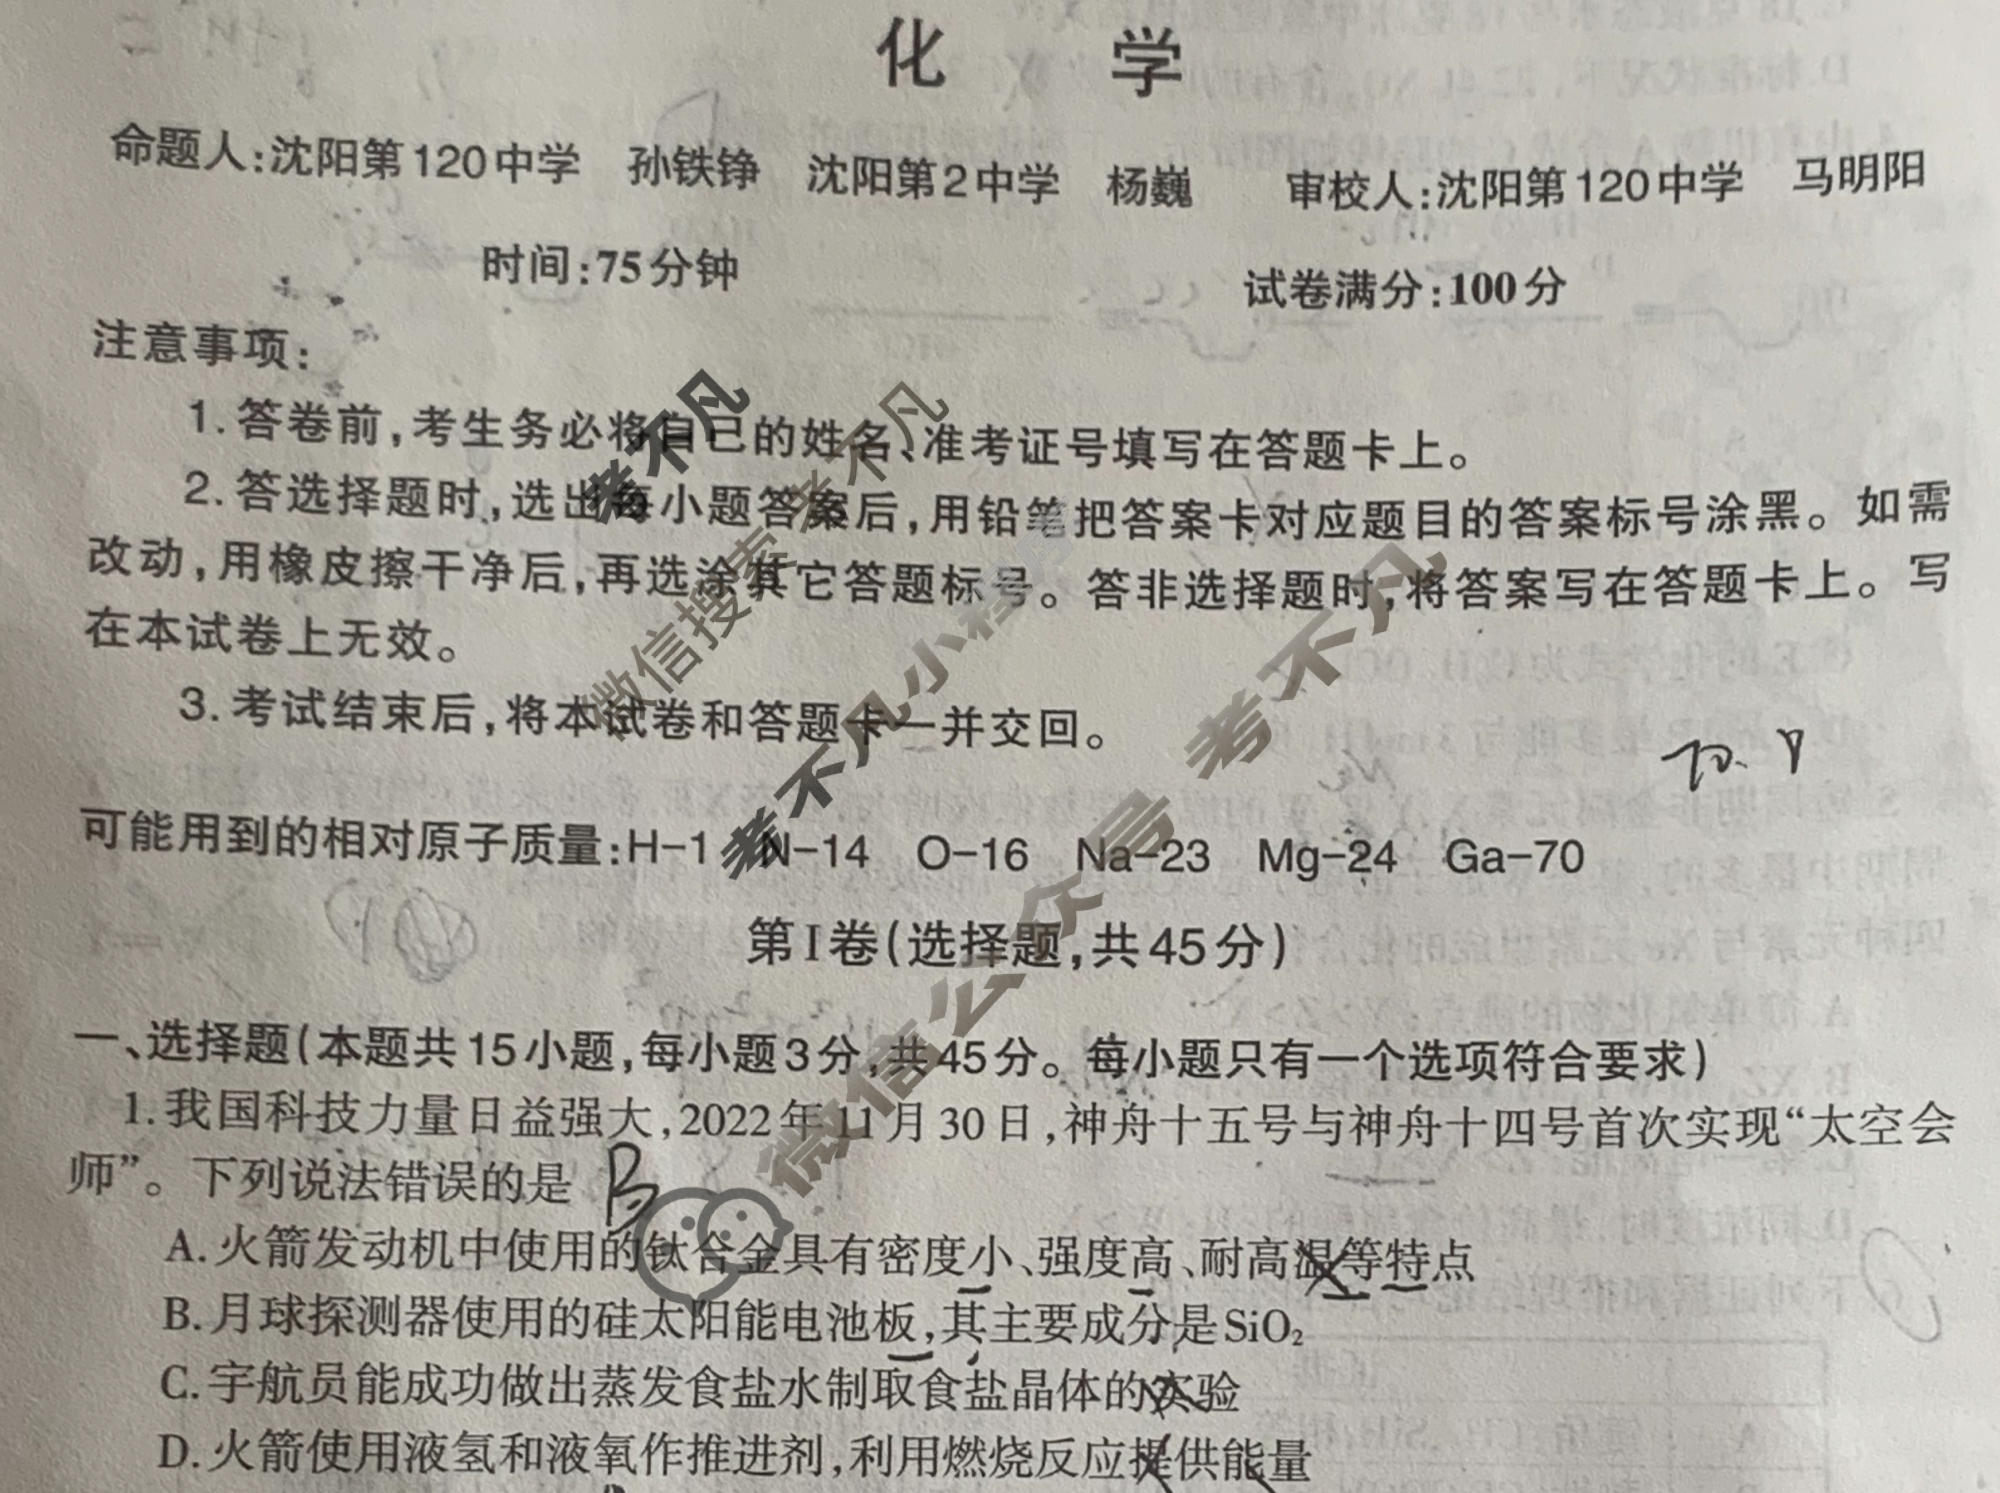 化 学
命题人:沈阳第120中学 孙铁铮 沈阳第2中学 杨巍 审校人:沈阳第120中学 马明阳
时间:75分钟 试卷满分:100分
注意事项:
1.答卷前,考生务必将自己的姓名、准考证号填写在答题卡上。
2.答选择题时,选出每小题答案后,用铅笔把答案卡对应题目的答案标号涂黑。如需
改动,用橡皮擦干净后,再选涂其它答题标号。答非选择题时,将答案写在答题卡上。写
在本试卷上无效。
3.考试结束后,将本试卷和答题卡一并交回。
可能用到的相对原子质量:H-1 N-14 O-16 Na-23 Mg-24 Ga-70
第I卷(选择题,共45分)
一、选择题(本题共15小题,每小题3分,共45分。每小题只有一个选项符合要求)
1.我国科技力量日益强大,2022年11月30日,神舟十五号与神舟十四号首次实现“太空会
师”。下列说法错误的是 B
A.火箭发动机中使用的钛合金具有密度小、强度高、耐高温等特点
B.月球探测器使用的硅太阳能电池板,其主要成分是SiO₂
C.宇航员能成功做出蒸发食盐水制取食盐晶体的实验
D.火箭使用液氢和液氧作推进剂,利用燃烧反应提供能量
考不凡
微信搜索考不凡
考不凡小程序
微信公众号 考不凡